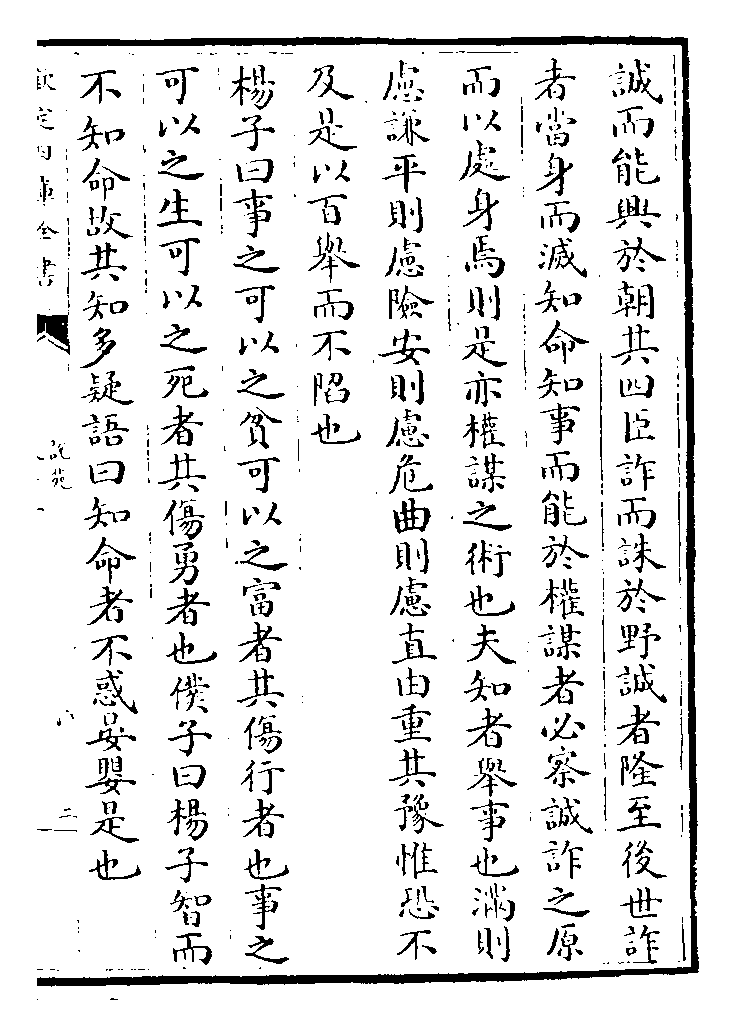 誠而能興於朝其四臣詐而誅於野誠者隆至後世詐
者當身而滅知命知事而能於權謀者必察誠詐之原
而以處身焉則是亦權謀之術也夫知者舉事也滿則
慮謙平則慮險安則慮危曲則慮直由重其豫惟恐不
及是以百舉而不陷也
楊子曰事之可以之貧可以之富者其傷行者也事之
可以之生可以之死者其傷勇者也僕子曰楊子智而
不知命故其知多疑語曰知命者不惑晏嬰是也
欽定四庫全書
說苑
二